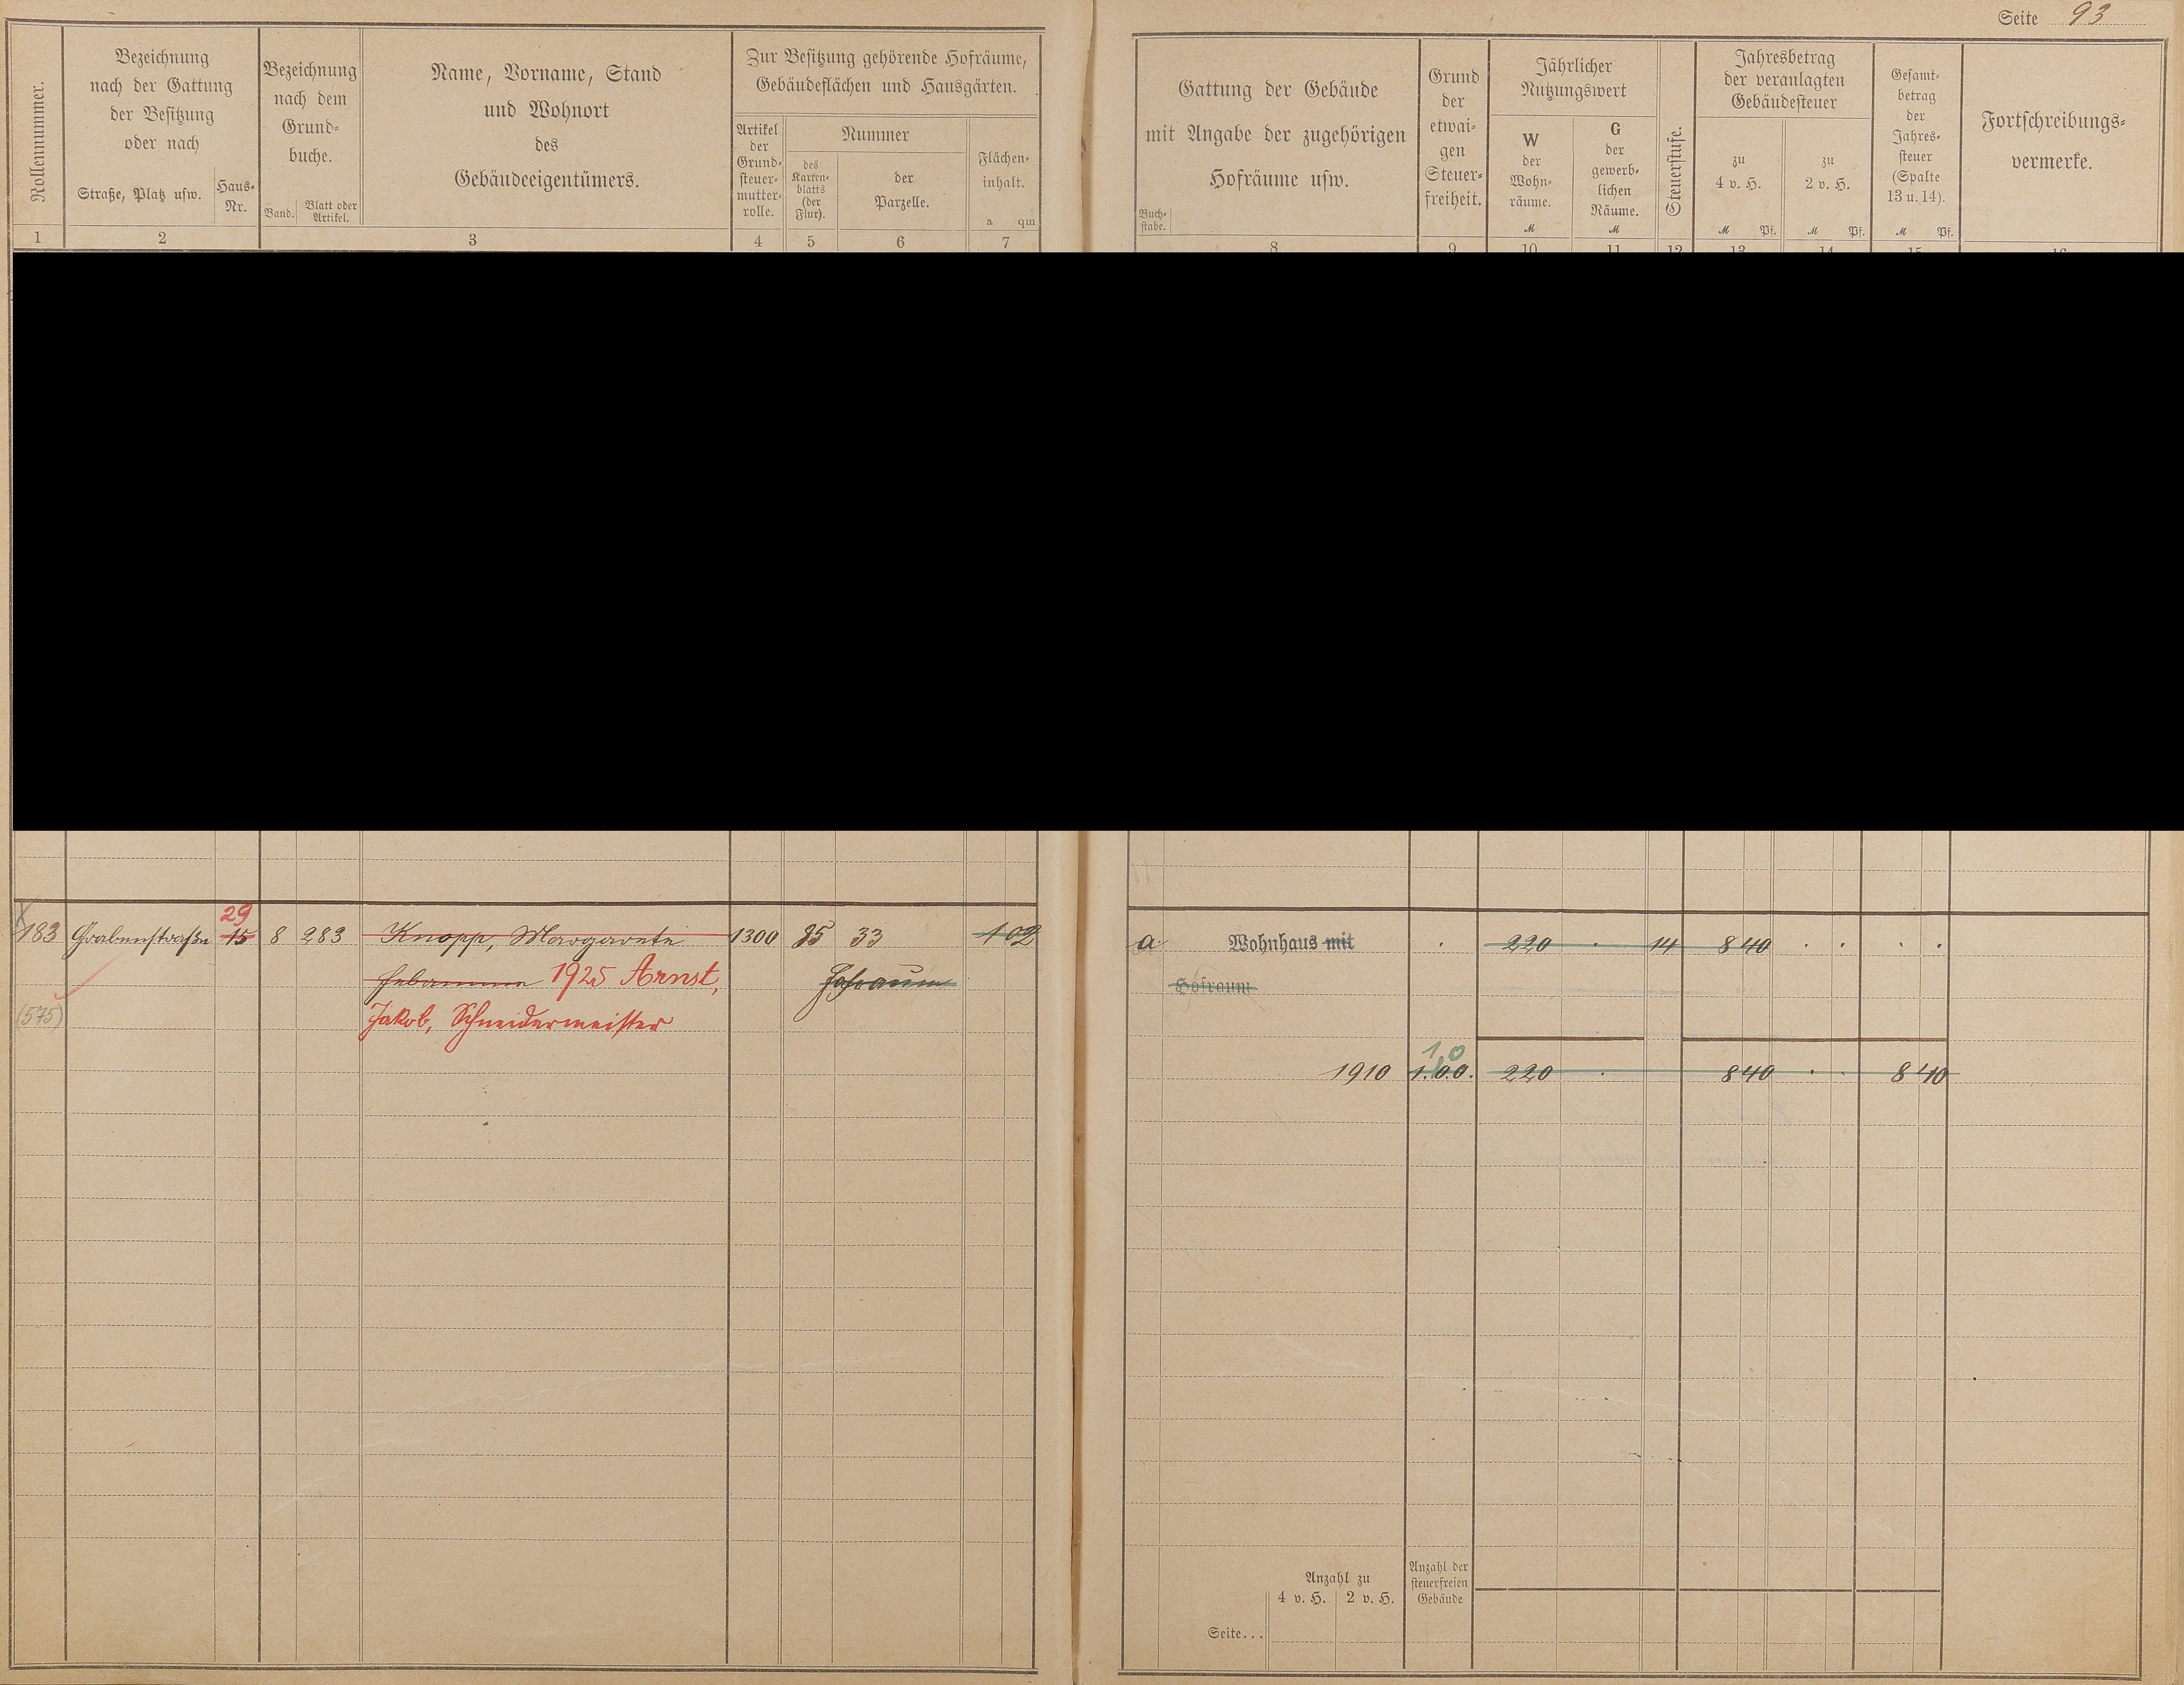 Seite 93
Rollennummer.
Bezeichnung
nach der Gattung
der Besitzung
oder nach
Straße, Platz usw.
Haus-
Nr.
Bezeichnung
nach dem
Grund-
buche.
Band.
Blatt oder
Artikel.
Name, Vorname, Stand
und Wohnort
des
Gebäudeeigentümers.
Zur Besitzung gehörende Hofräume,
Gebäudeflächen und Hausgärten.
Artikel
der
Grund-
steuer-
mutter-
rolle.
Nummer
des
Karten-
blatts
(der
Flur).
der
Parzelle.
Flächen-
inhalt.
a qm
1 2 3 4 5 6 7
Gattung der Gebäude
mit Angabe der zugehörigen
Hofräume usw.
Buch-
stabe.
Grund
der
etwai-
gen
Steuer-
freiheit.
Jährlicher
Nutzungswert
W
der
Wohn-
räume.
M
G
der
gewerb-
lichen
Räume.
M
Steuerstufe.
Jahresbetrag
der veranlagten
Gebäudesteuer
zu
4 v. H.
M Pf.
zu
2 v. H.
M Pf.
Gesamt-
betrag
der
Jahres-
steuer
(Spalte
13 u. 14).
M Pf.
Fortschreibungs-
vermerke.
8 9 10 11 12 13 14 15 16
29
183 Grabenstraße 15 8 283 Knopp, Margarete 1300 35 33 102
Hebamme 1925 Arnst, Hofraum
(575) Jakob, Schneidermeister
a Wohnhaus mit . 220 . 14 8 40 . . . .
Hofraum
1 0
1910 1.0.0. 220 . 8 40 . . 8 40
Anzahl zu
4 v. H. 2 v. H.
Anzahl der
steuerfreien
Gebäude
Seite...